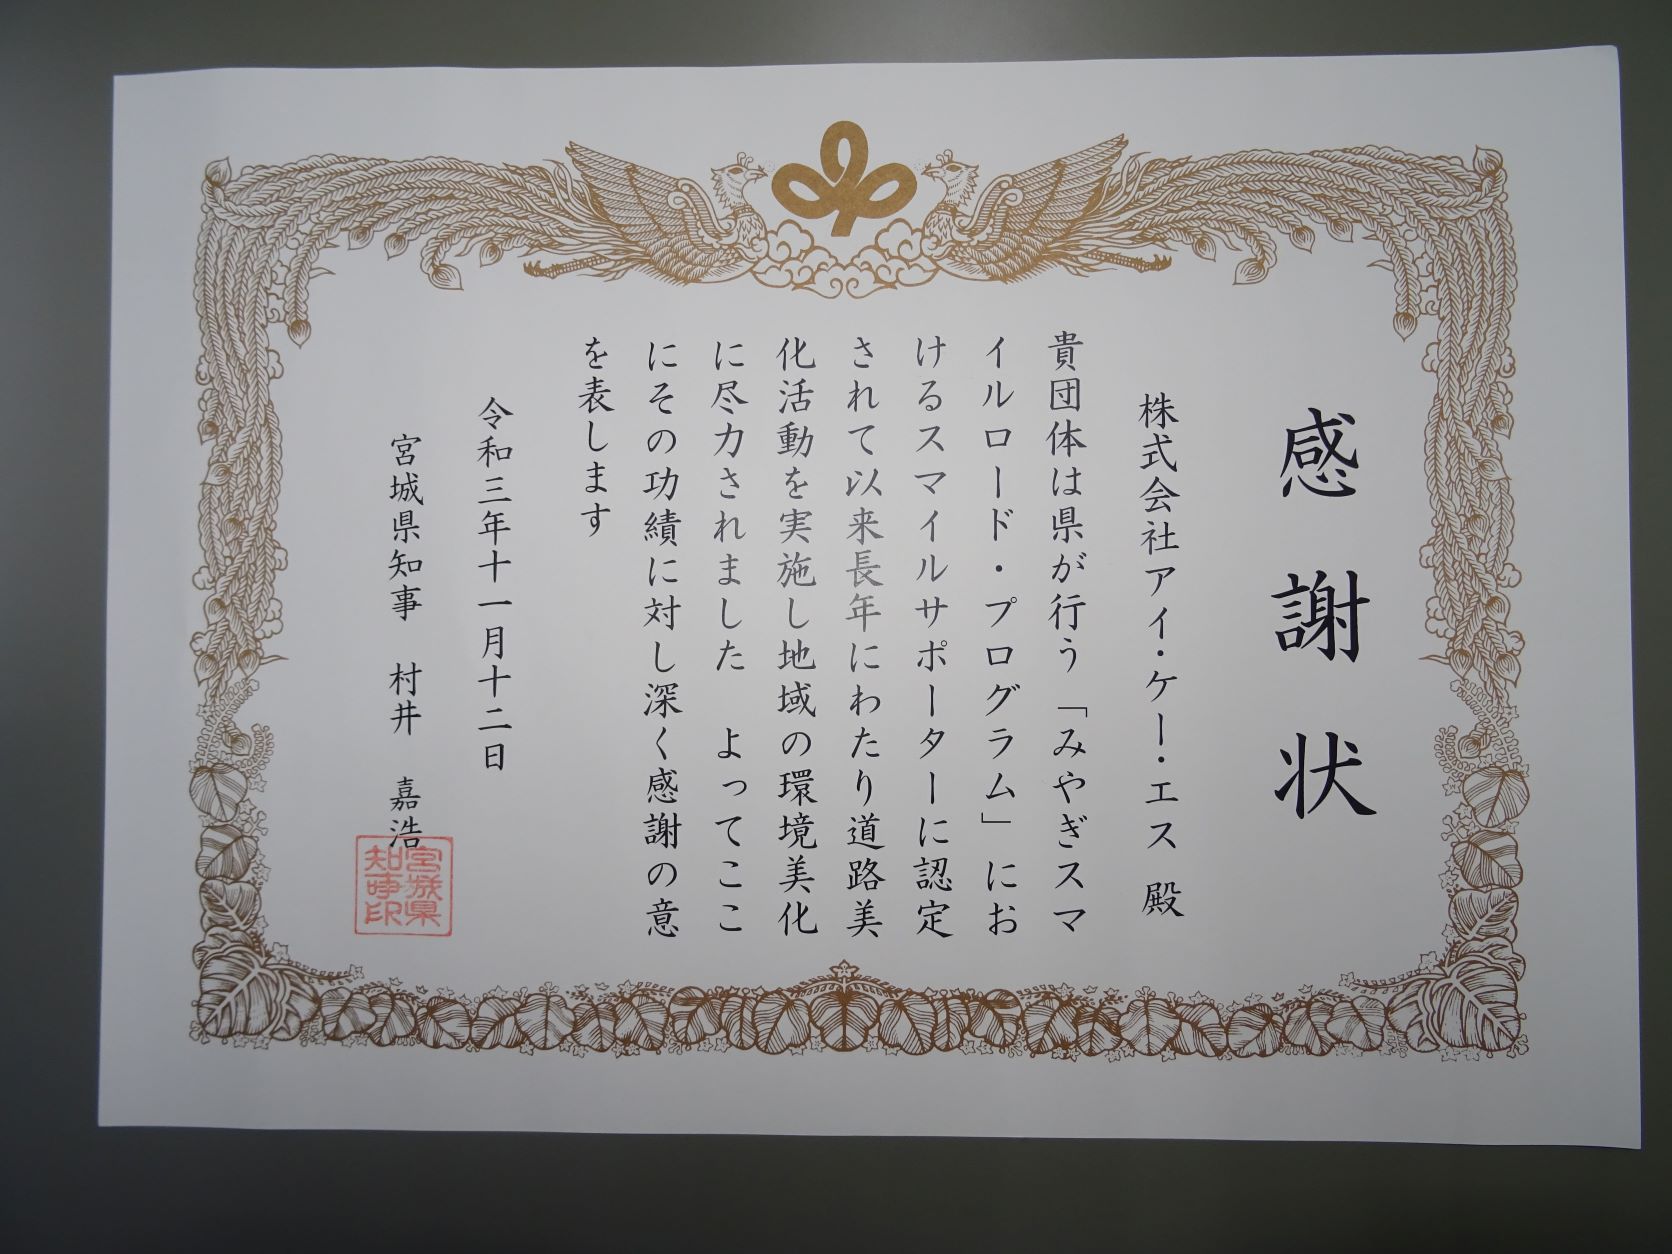 感謝状
株式会社アイ・ケー・エス 殿
貴団体は県が行う「みやぎスマ
イルロード・プログラム」にお
けるスマイルサポーターに認定
されて以来長年にわたり道路美
化活動を実施し地域の環境美化
に尽力されました よってここ
にその功績に対し深く感謝の意
を表します
令和三年十一月十二日
宮城県知事 村井 嘉浩
宮城県
知事印